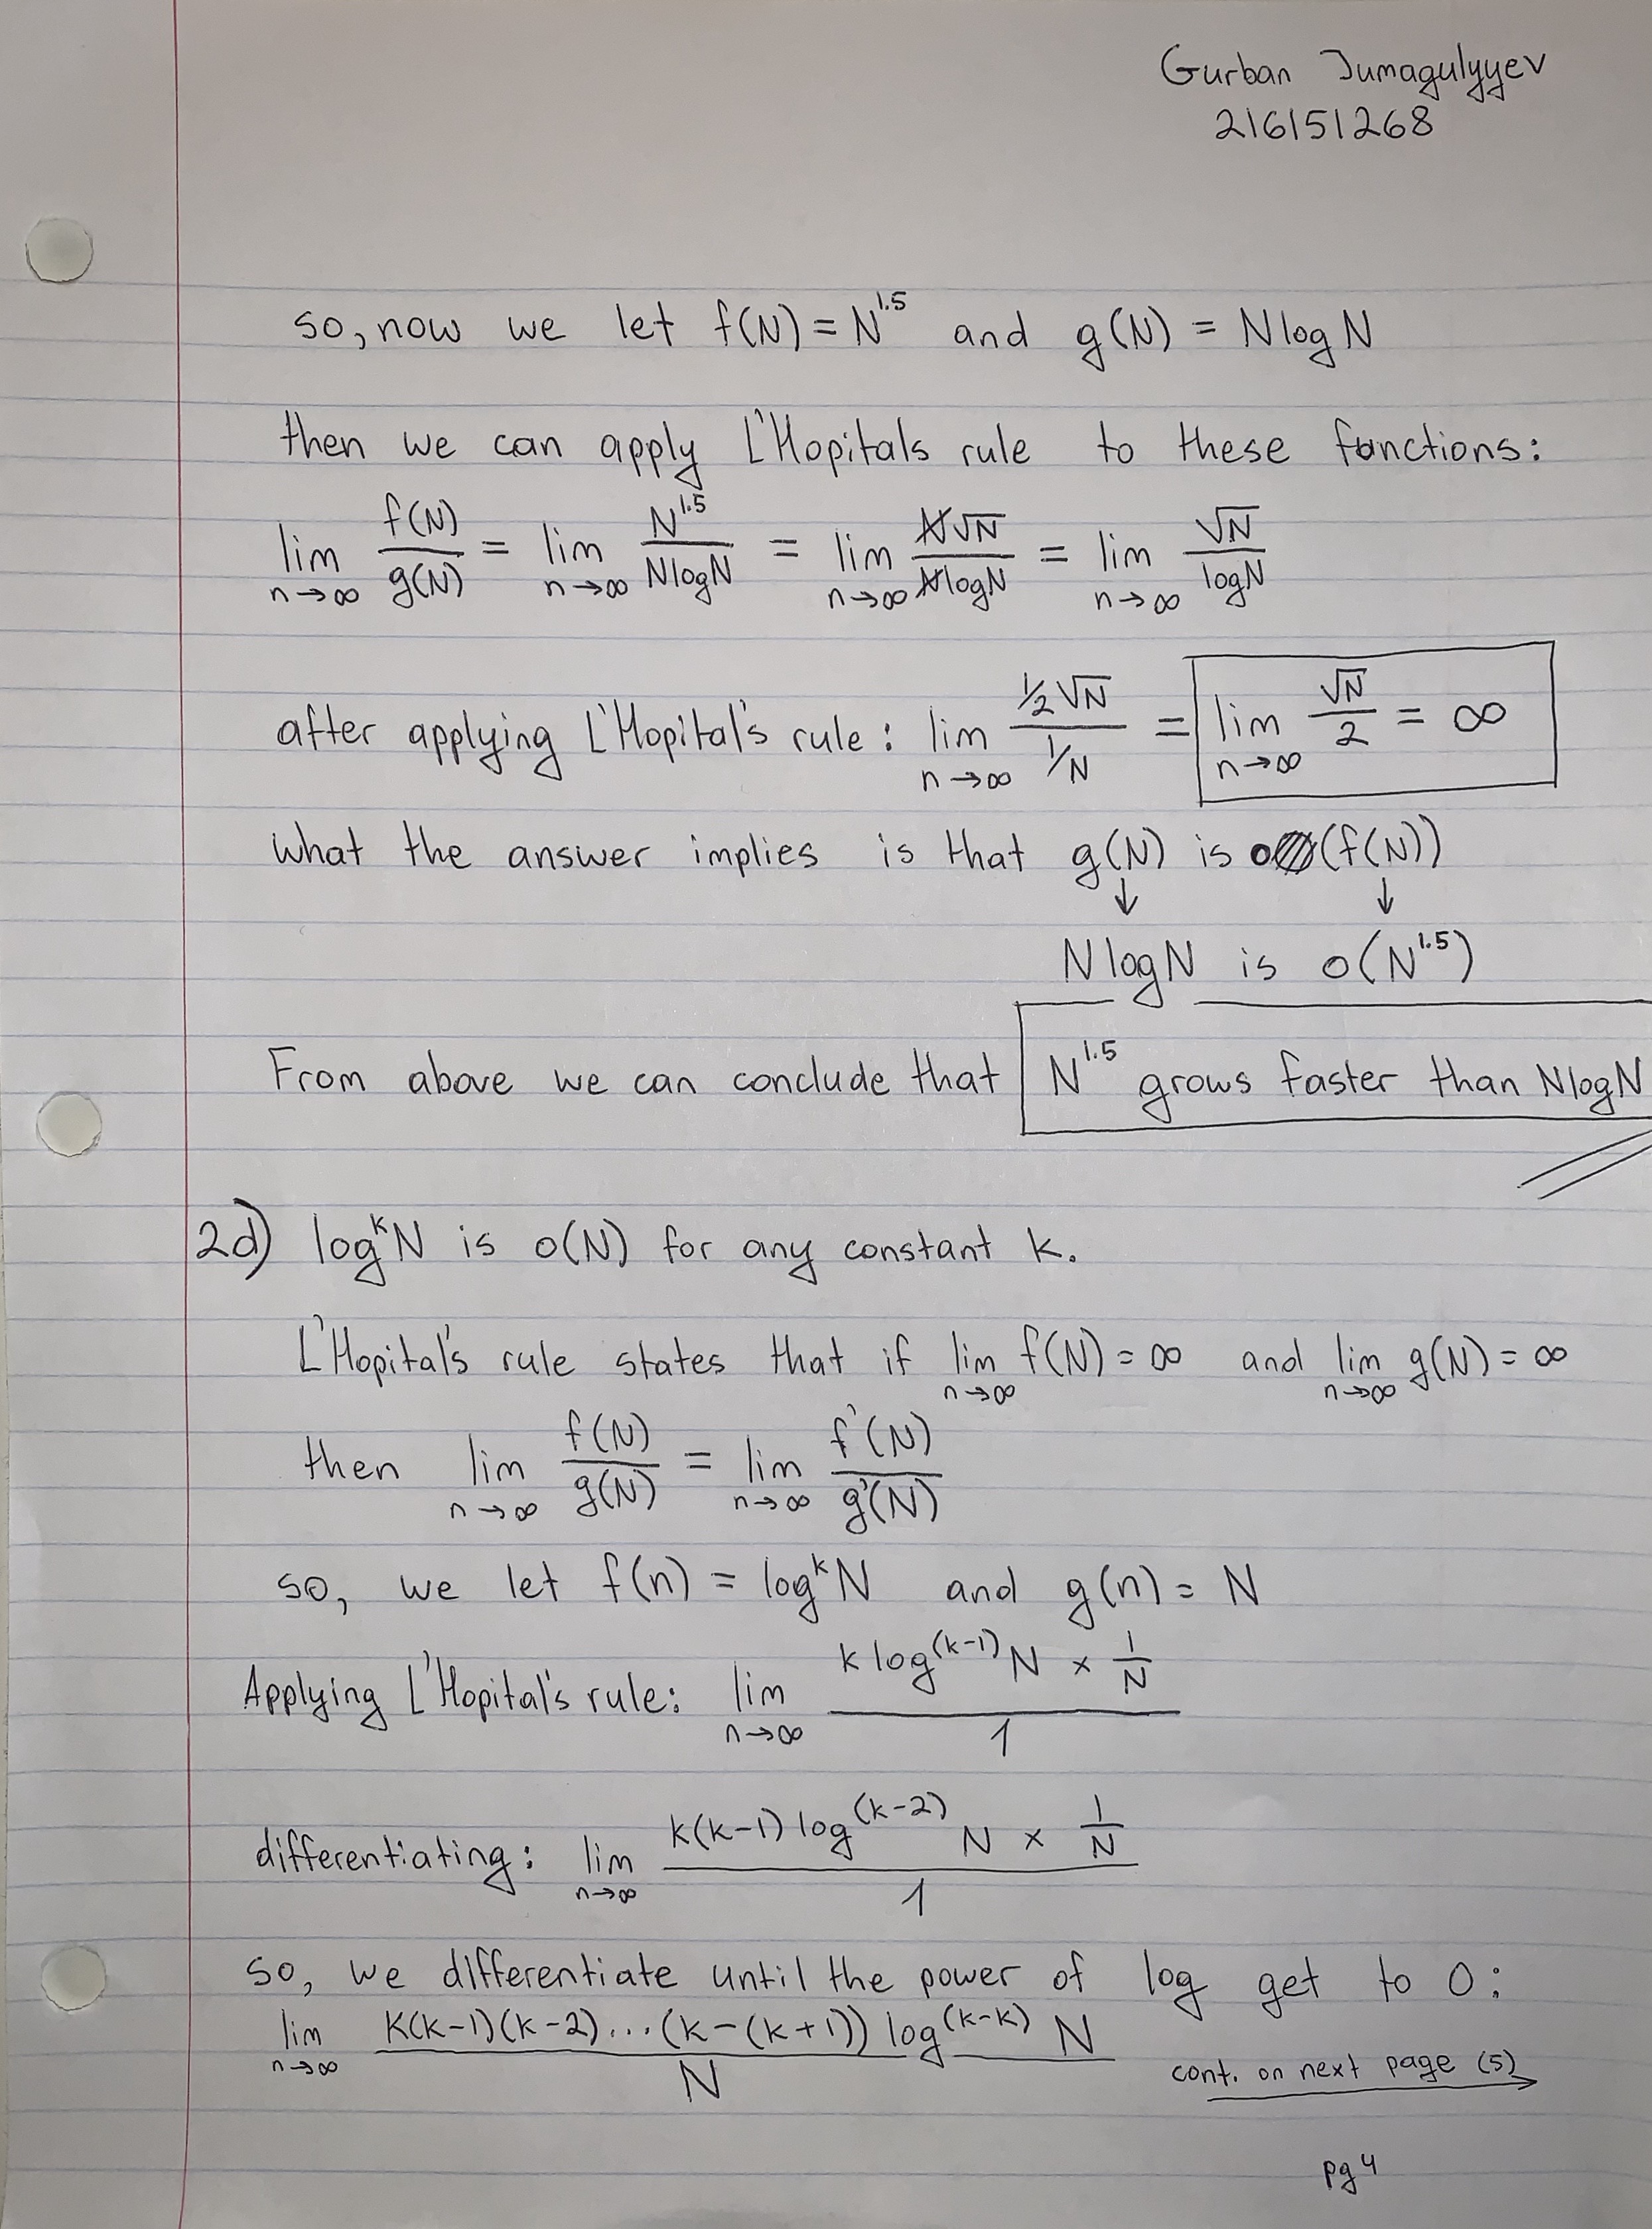 Gurban Jumagulyyev
216151268
so, now we let f(N) = N^1.5 and g(N) = N log N
then we can apply L'Hopitals rule to these functions:
lim n→∞ f(N)/g(N) = lim n→∞ N^1.5/NlogN = lim n→∞ N√N/NlogN = lim n→∞ √N/logN
after applying L'Hopital's rule: lim n→∞ (1/2 √N)/(1/N) = lim n→∞ √N/2 = ∞
what the answer implies is that g(N) is o(f(N))
↓ ↓
N log N is o(N^1.5)
From above we can conclude that N^1.5 grows faster than NlogN
2d) log^k N is o(N) for any constant k.
L'Hopital's rule states that if lim n→∞ f(N) = ∞ and lim n→∞ g(N) = ∞
then lim n→∞ f(N)/g(N) = lim n→∞ f'(N)/g'(N)
so, we let f(n) = log^k N and g(n) = N
Applying L'Hopital's rule: lim n→∞ (k log^(k-1) N × 1/N)/1
differentiating: lim n→∞ (k(k-1) log^(k-2) N × 1/N)/1
so, we differentiate until the power of log get to 0:
lim n→∞ (k(k-1)(k-2)...(k-(k+1)) log^(k-k) N)/N
cont. on next page (5)
→
pg 4